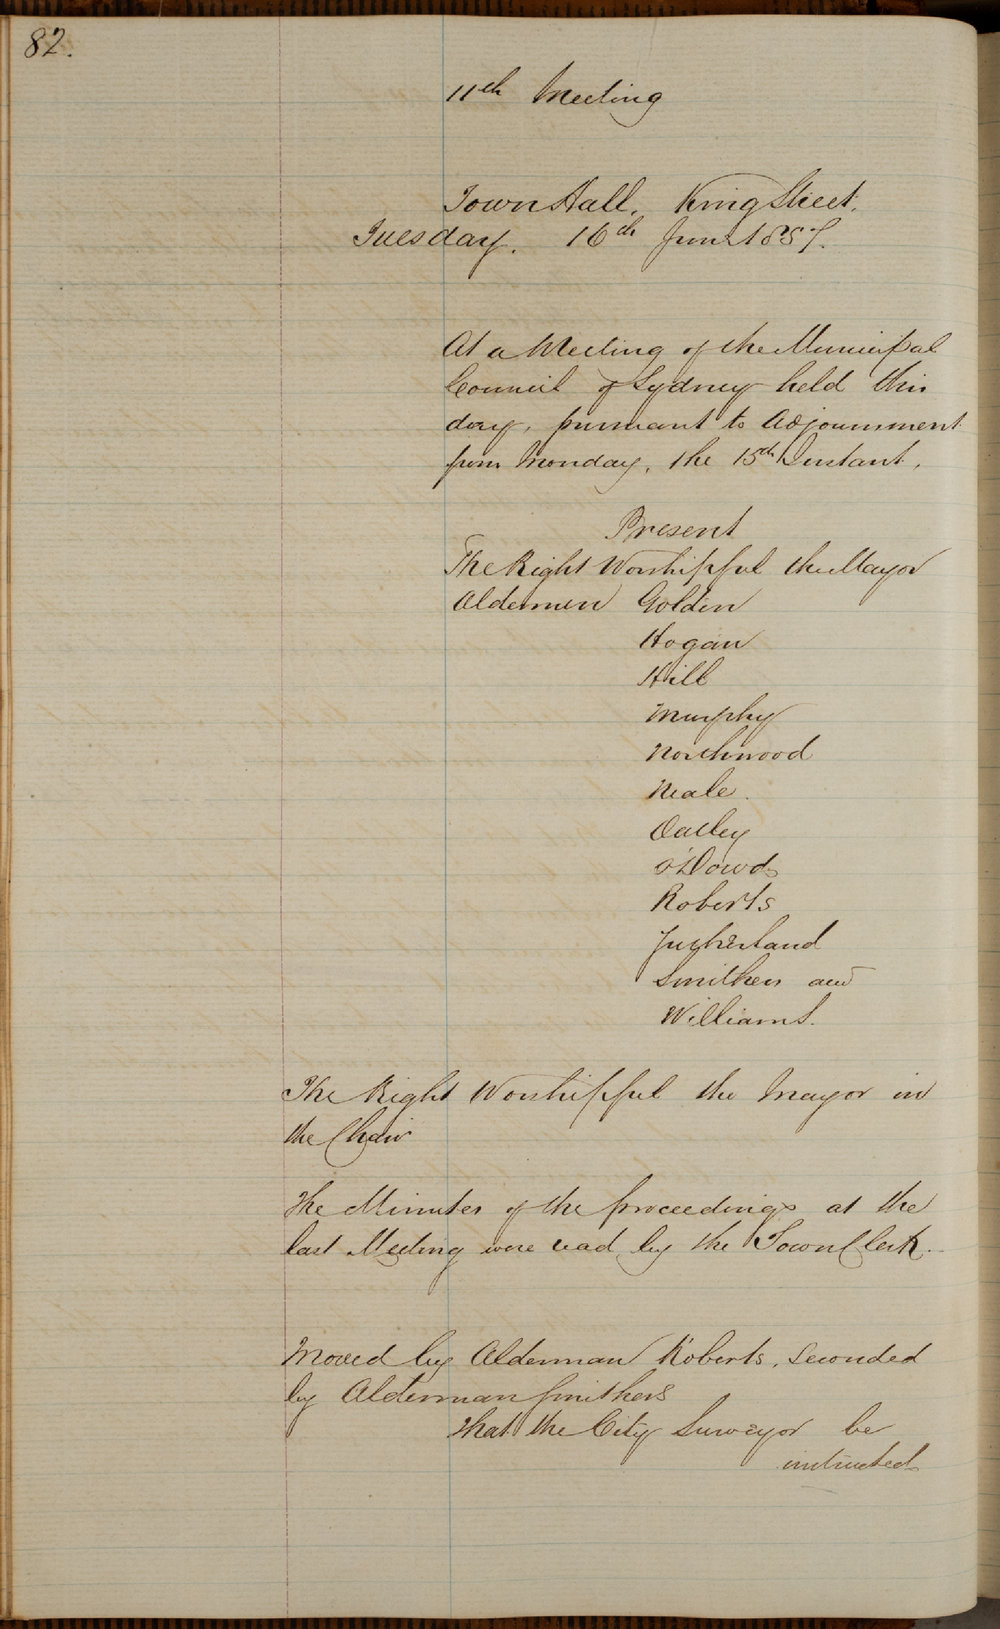 82.
11th Meeting
Town Hall, King Street.
Tuesday. 16th June 1857.
At a Meeting of the Municipal
Council of Sydney held this
day, pursuant to Adjournment
from Monday, the 15th Instant.
Present
The Right Worshipful the Mayor
Aldermen Golden
Hogan
Hill
Murphy
Northwood
Neale.
Oatley
O'Dowd
Roberts
Sutherland
Smithers and
Williams.
The Right Worshipful the Mayor in
the Chair
The Minutes of the proceedings at the
last Meeting were read by the Town Clerk.
Moved by Alderman Roberts, Seconded
by Alderman Smithers
That the City Surveyor be
instructed